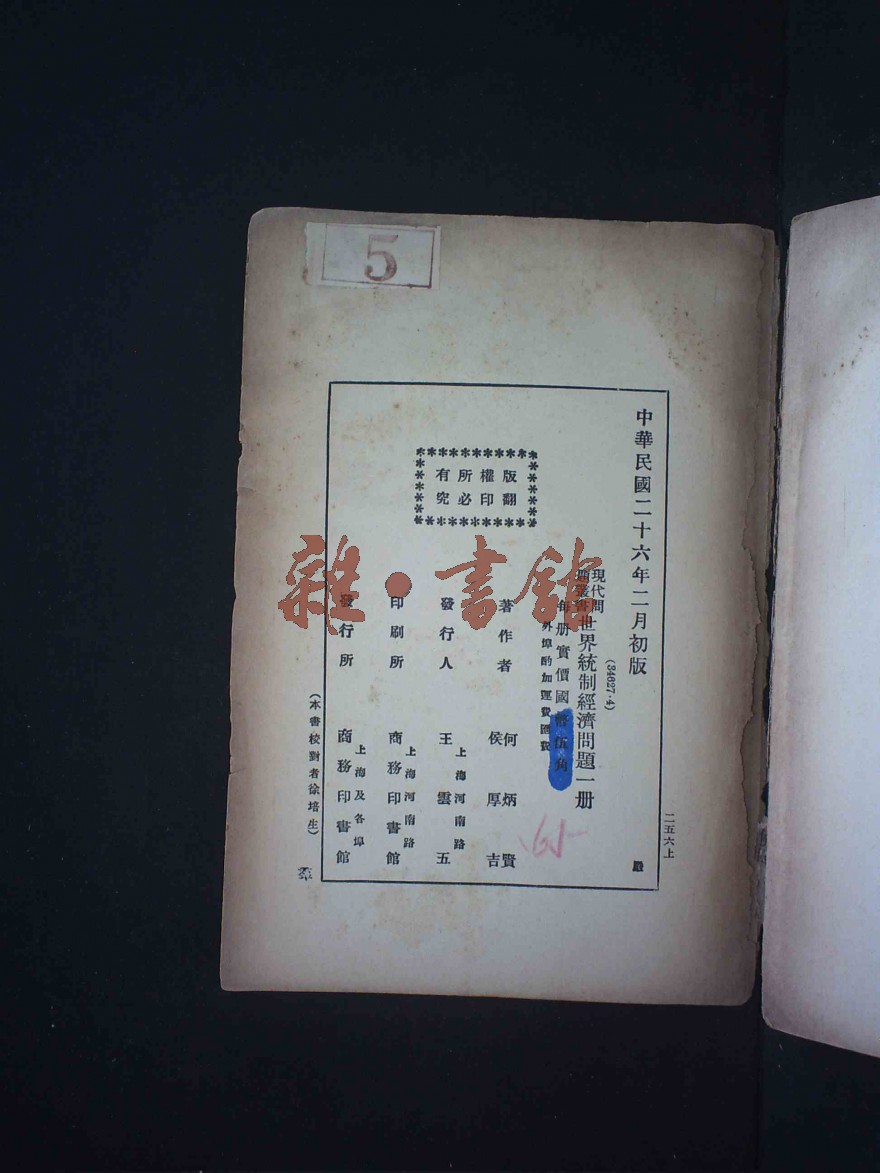 5
中華民國二十六年二月初版
(34627·4)
現代問題叢書 世界統制經濟問題一册
每册實價國幣伍角
外埠酌加運費匯費
版權所有
翻印必究
著作者 何炳賢
侯厚吉
發行人 王雲五
上海河南路
印刷所 商務印書館
上海河南路
發行所 商務印書館
上海及各埠
(本書校對者徐培生)
二五六上
嚴
雜·書館